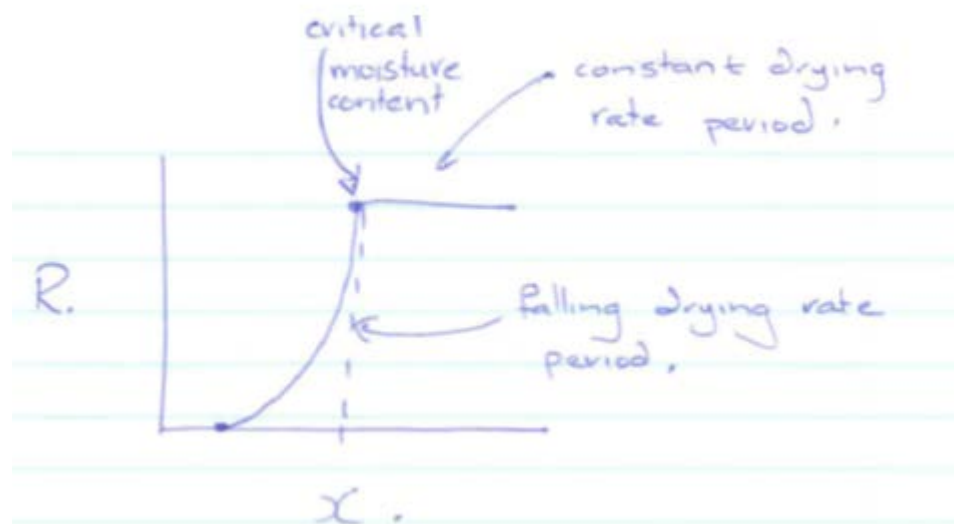 critical
moisture
content
constant drying
rate period.
R.
falling drying rate
period.
x.